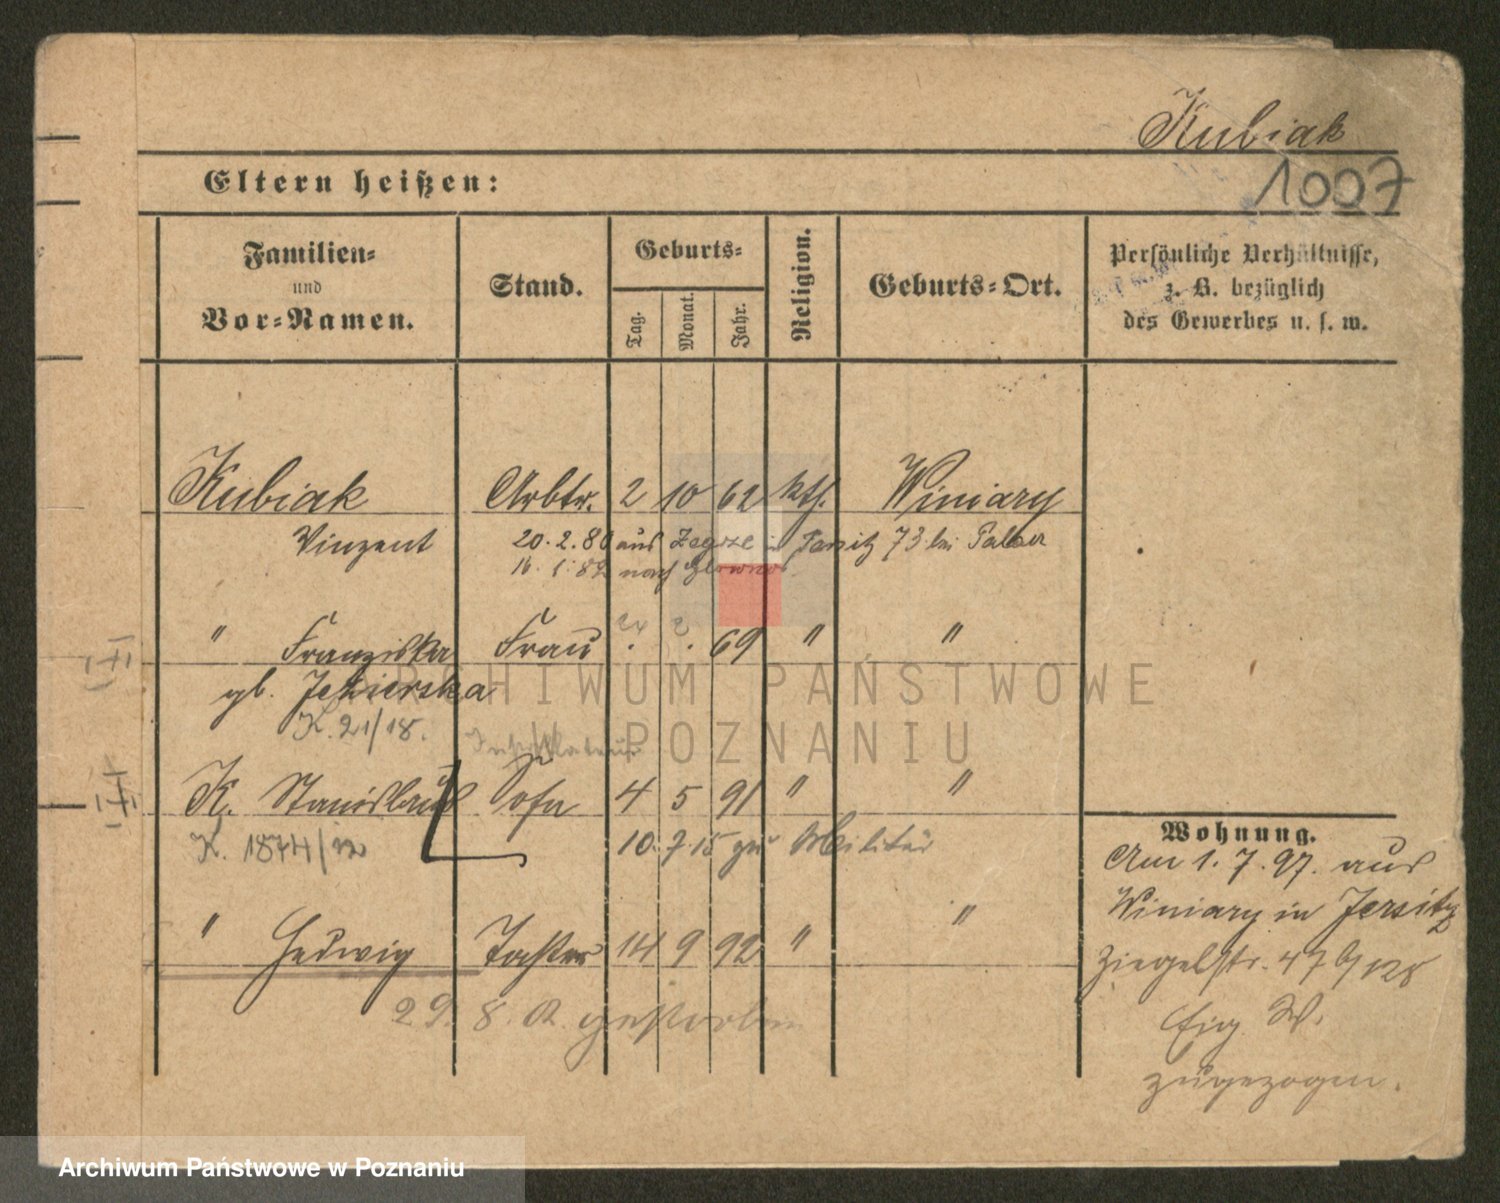 Kubiak
1007
Eltern heißen:
Familien-
und
Vor-Namen.
Stand.
Geburts-
Tag.
Monat.
Jahr.
Religion.
Geburts-Ort.
Persönliche Verhältnisse,
z. B. bezüglich
des Gewerbes u. s. w.
Kubiak Arbtr. 2 10 62 kth. Winiary
Vinzent 20. 2. 80 aus Zegrze in Jersitz 73 bei
nach Glowno
" Franziska Frau 69 " "
gb. Jezierska
K. 21/18.
K. Stanislaus Sohn 4 5 91 " "
K. 1874/12 10. 7. 15 zum Militär
" Hedwig Tochter 14 9 92 " "
29. 8. gestorben
Wohnung.
Am 1. 7. 97. aus
Winiary in Jersitz
Ziegelstr. 47 b/128
Eig. W.
zugezogen.
ARCHIWUM PAŃSTWOWE
W POZNANIU
Archiwum Państwowe w Poznaniu